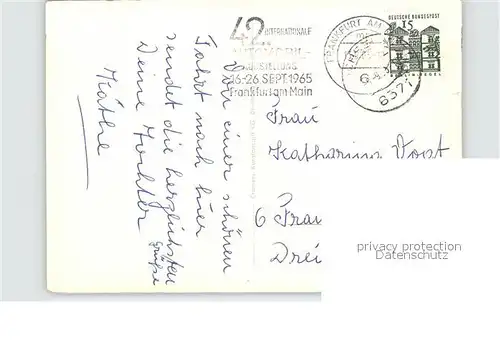 42. INTERNATIONALE
AUTOMOBIL-
AUSSTELLUNG
16.-26. SEPT. 1965
Frankfurt am Main
FRANKFURT AM
DEUTSCHE BUNDESPOST
15
TEGEL
6371
Von einer schönen
Fahrt nach hier
sendet die herzlichsten
Grüße
Deine Tochter
Käthe
Frau
Katharina Vogt
6 Frau
Drei
privacy protection
Datenschutz